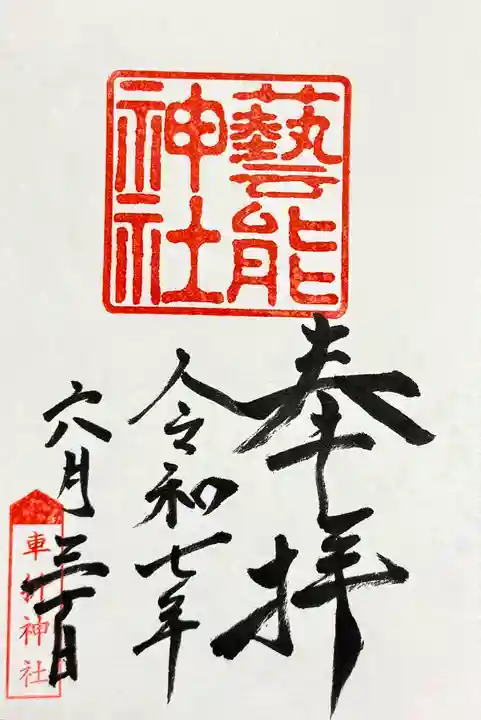 藝能
神社
奉拝
令和七年
六月三十日
車折神社